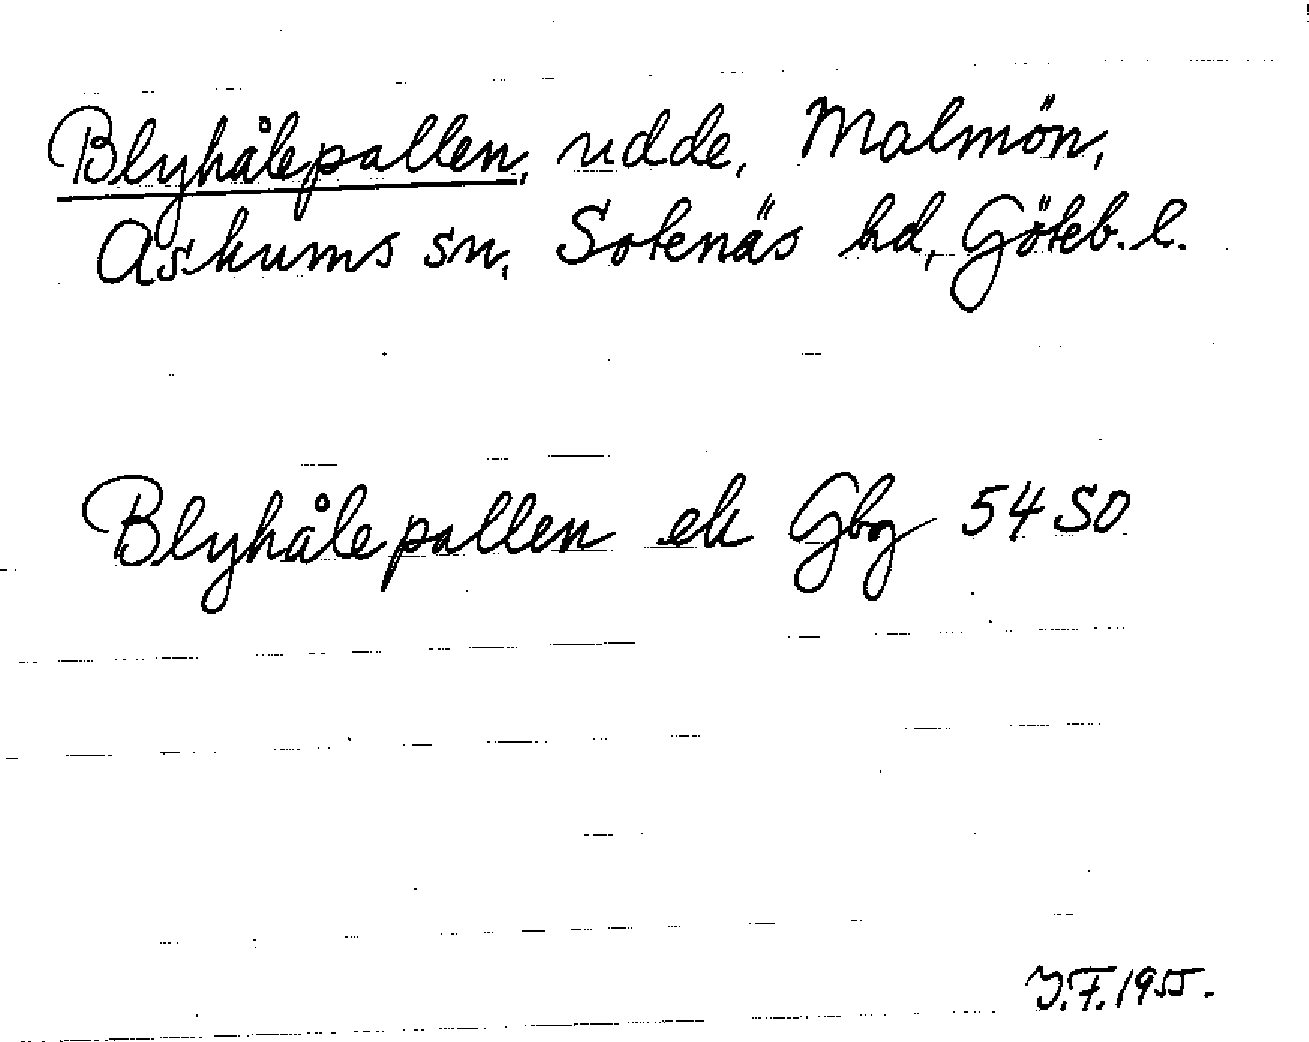 Blyhålepallen, udde, Malmön,
Askums sn, Sotenäs hd, Göteb. l.
Blyhålepallen ek Gbg 54 SO
J.F. 1955.